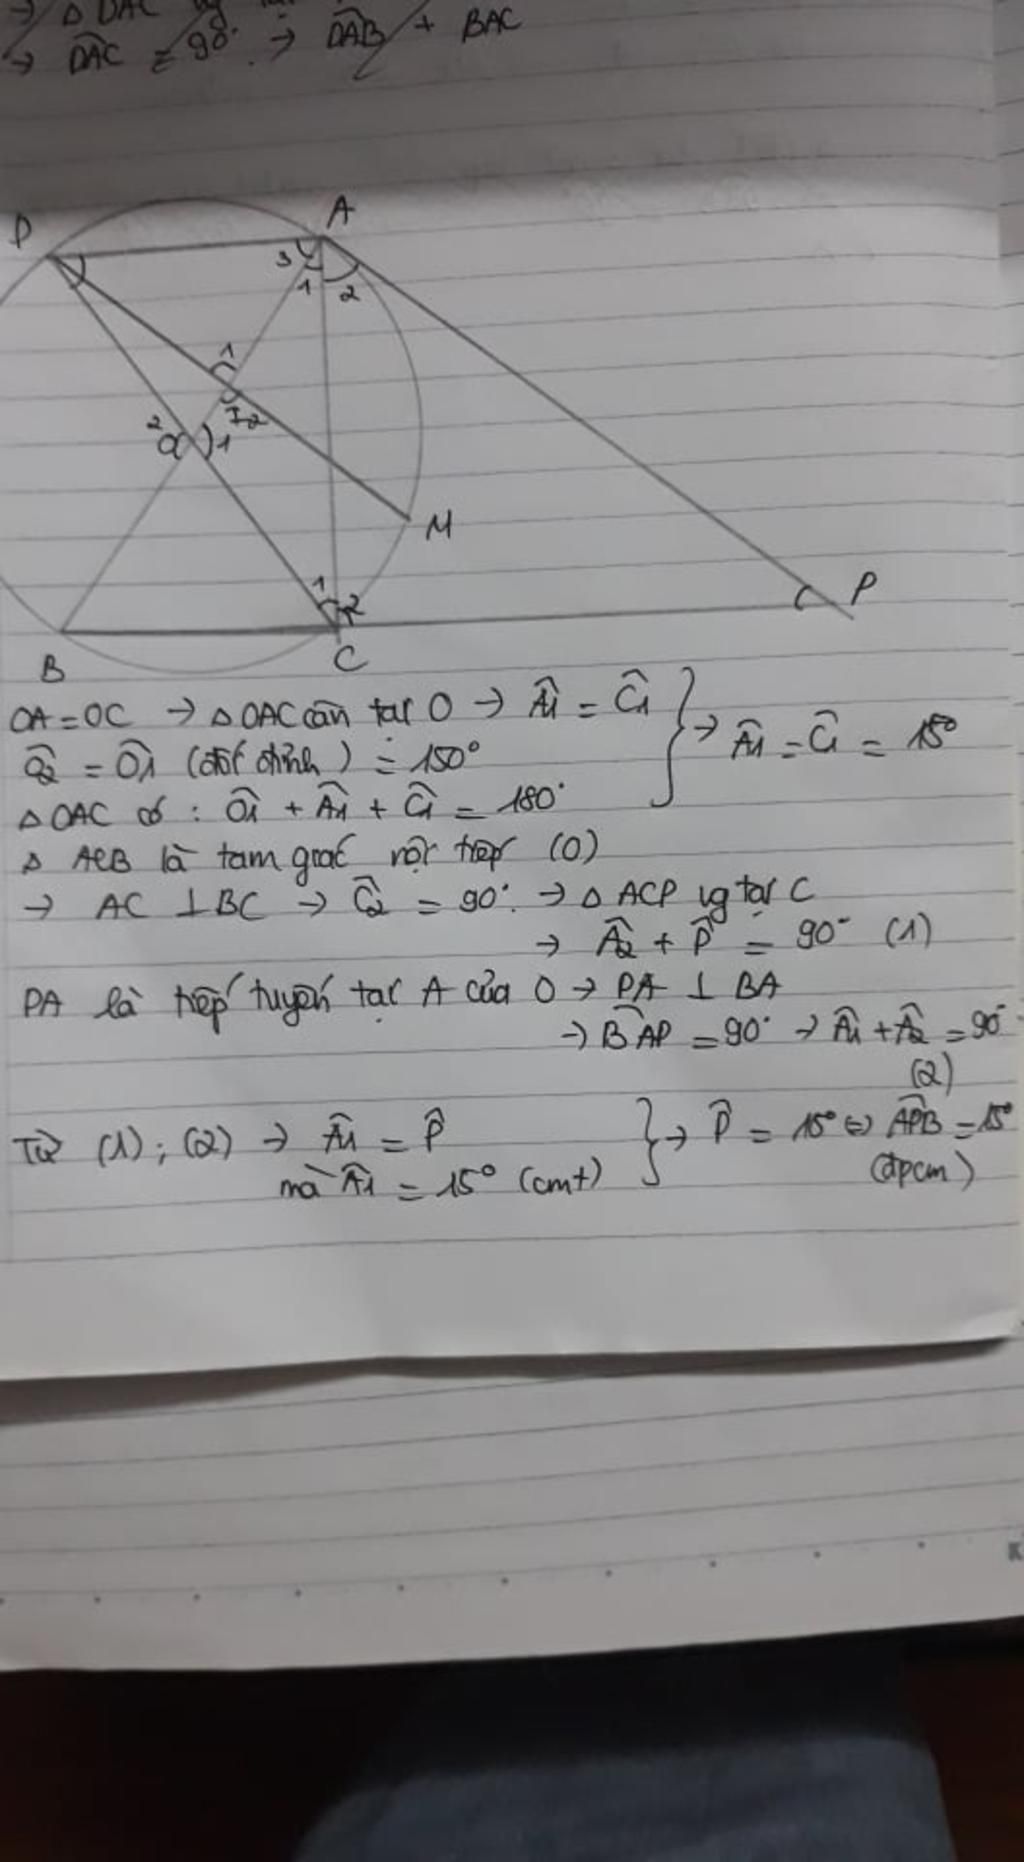 → △ DAC
→ D̂AC = 90° → D̂AB + BAC
D
A
3
1
2
1
I2
2
O
1
M
1
2
P
B
C
OA = OC → △ OAC cân tại O → Â1 = Ĉ1
Ô2 = Ô1 (đối đỉnh) = 150°
△ OAC có : Ô1 + Â1 + Ĉ1 = 180°
} → Â1 = Ĉ1 = 15°
△ ACB là tam giác nội tiếp (O)
→ AC ⊥ BC → Ĉ2 = 90° → △ ACP vg tại C
→ Â2 + P̂ = 90° (1)
PA là tiếp tuyến tại A của O → PA ⊥ BA
→ B̂AP = 90° → Â1 + Â2 = 90°
(2)
Từ (1) ; (2) → Â1 = P̂
mà Â1 = 15° (cmt)
} → P̂ = 15° ⇔ ÂPB = 15°
(đpcm)
K